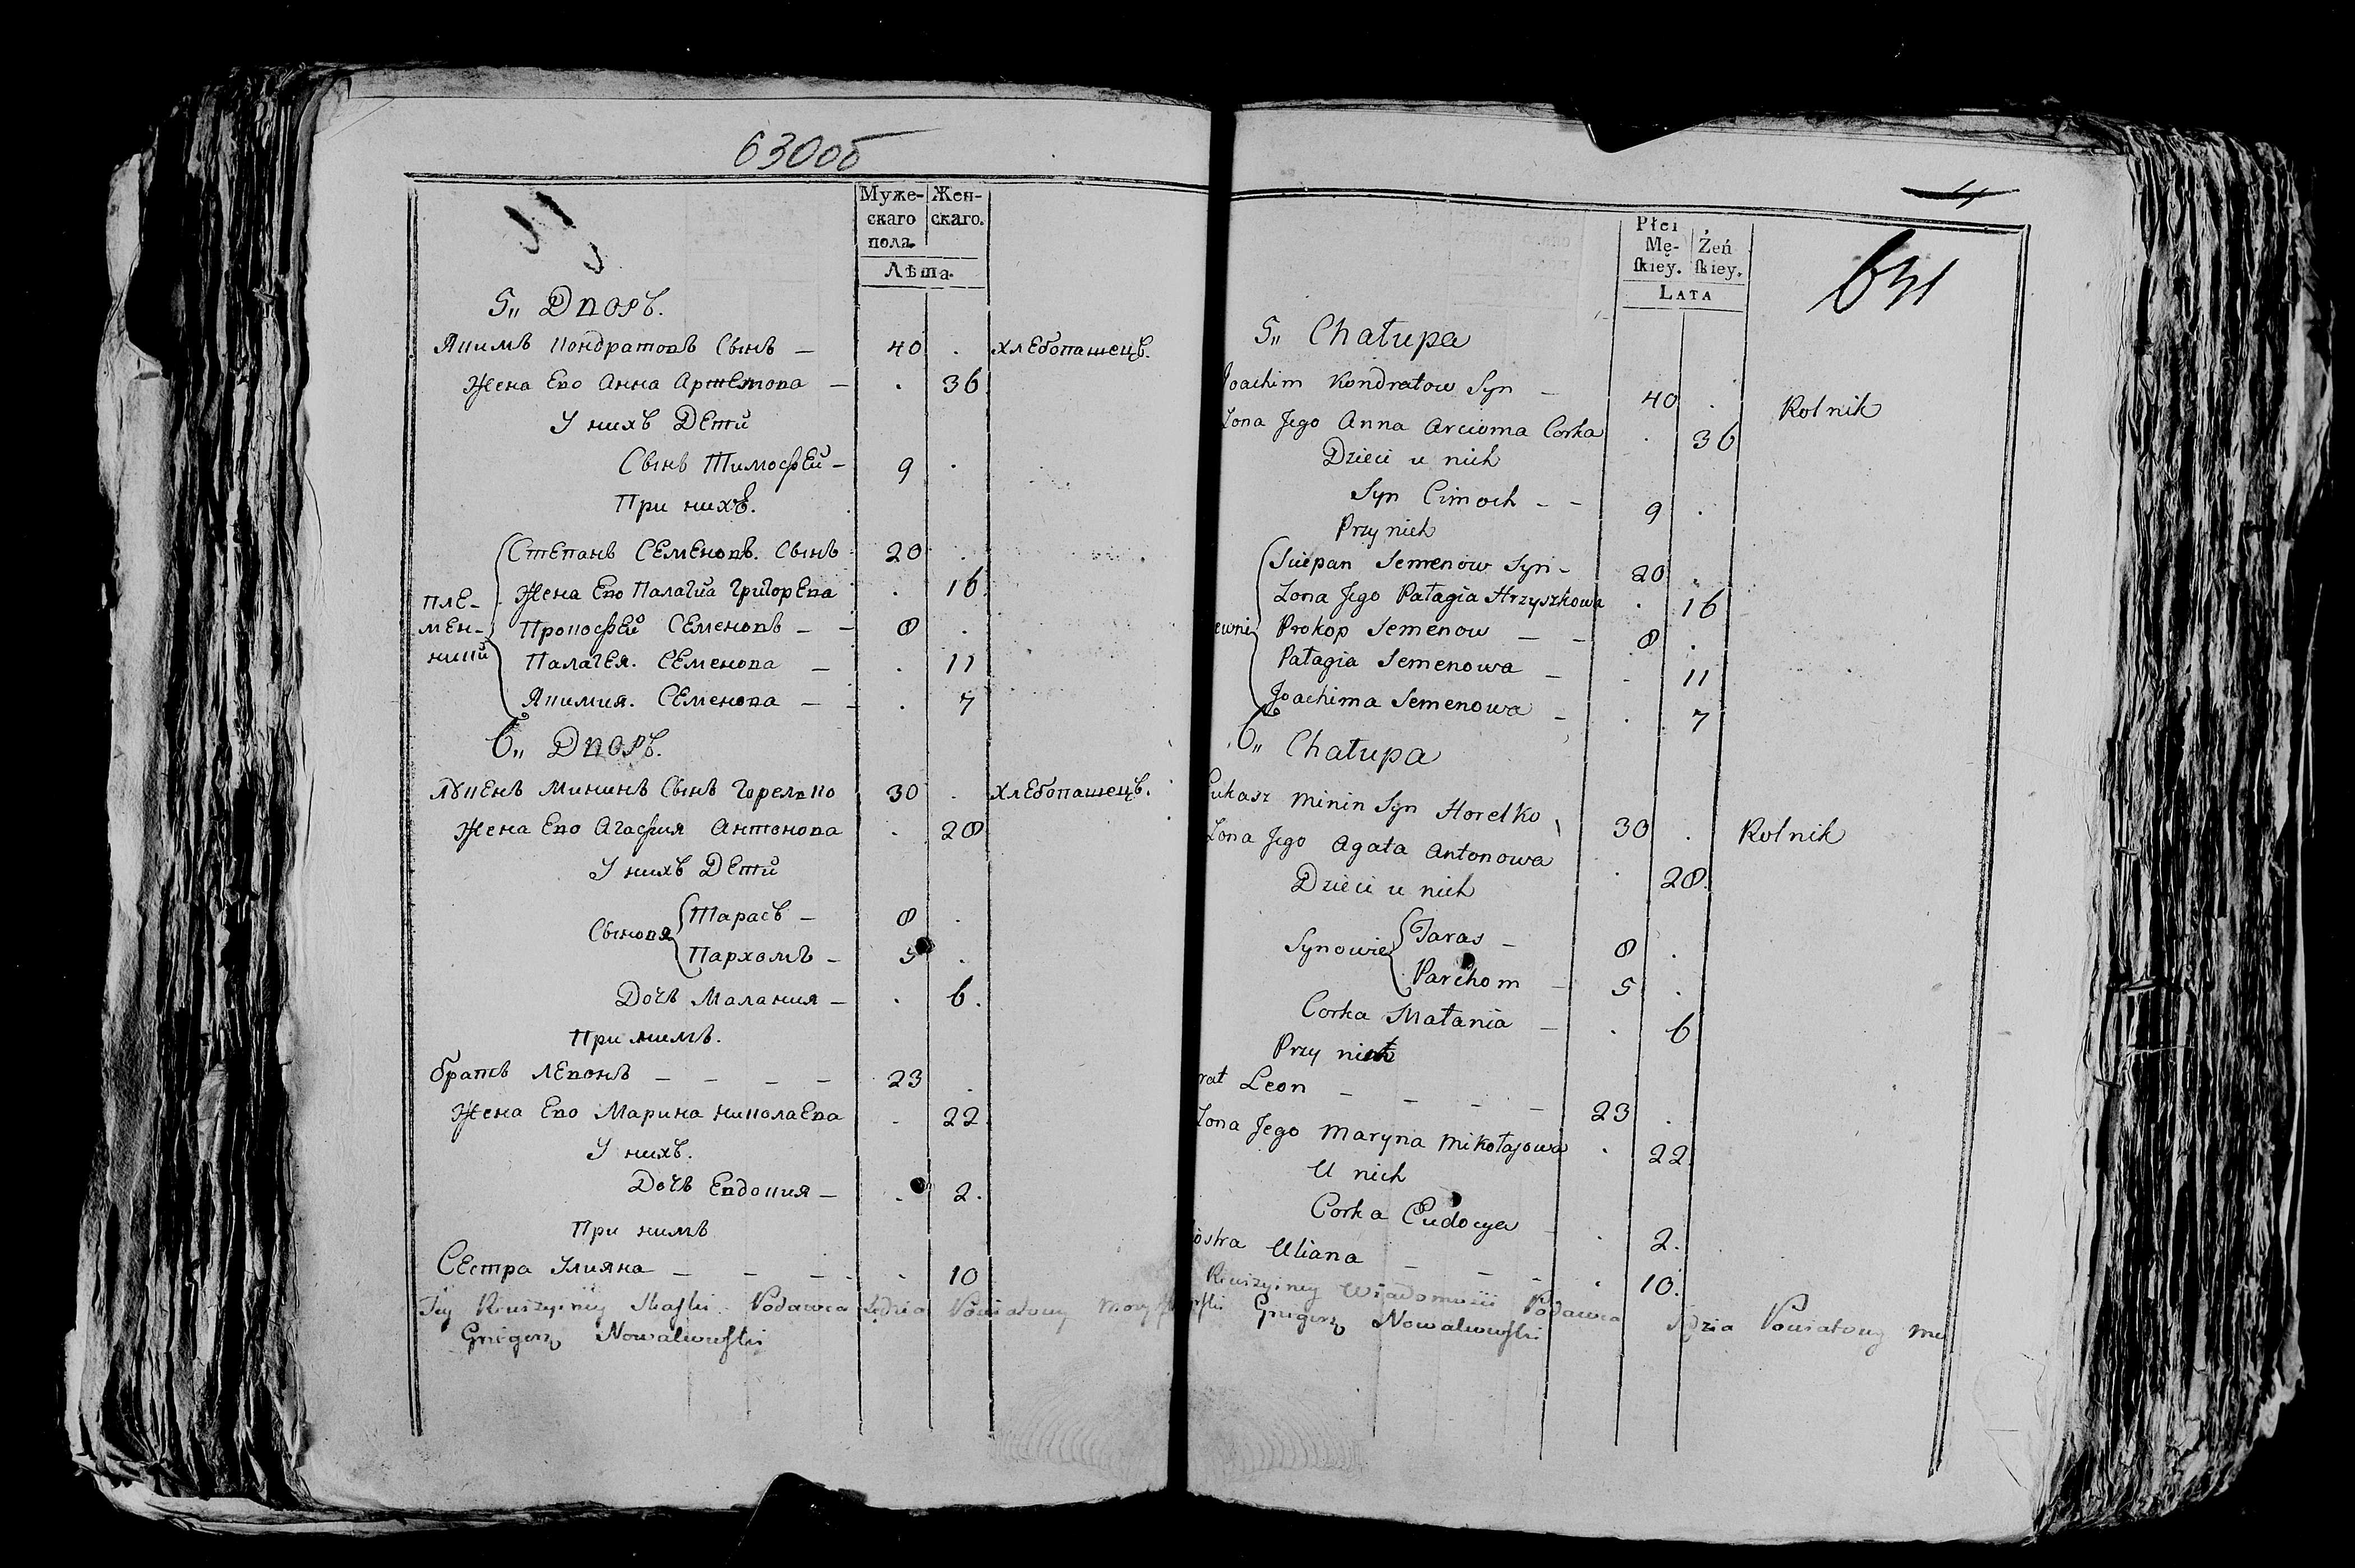 630об
Муже- Жен-
скаго скаго.
пола.
Лѣта.
5„ Дворъ.
Якимъ Кондратовъ Сынъ — 40 . хлебопашецъ.
Жена Ево Анна Артемова — . 36
У нихъ Дети
Сынъ Тимофей — 9 .
При нихъ.
Степанъ Семеновъ. Сынъ 20 .
Жена Ево Палагиа Григорева . 16
Пле-
мен-
ники
Прокофей Семеновъ — — 8 .
Палагея. Семенова — . 11
Якимия. Семенова — — . 7
6„ Дворъ.
Лукенъ Мининъ Сынъ Горелко 30 . хлебопашецъ.
Жена Ево Агафия Антонова . 28
У нихъ Дети
Сыновя Тарасъ — 8 .
Пархомъ — 5 .
Дочь Малания — . 6.
При нимъ.
братъ Левонъ — — — — 23 .
Жена Ево Марина Николаева . 22
У нихъ.
Дочь Евдокия — . 2.
При нимъ
Сестра Улияна — — — . 10
Tey Rewizyiney Skaski Podawca Sędzia Powiatowy
Grzegorz Nowalewski
631
Płci
Mę- Żeń
ſkiey. ſkiey.
LATA
5„ Chałupa
Joachim Kondratow Syn — 40 . Rolnik
Zona Jego Anna Arcioma Corka . 36
Dzieci u nich
Syn Cimoch — — 9 .
Przy nich
Sciepan Semenow Syn — 20 .
Zona Jego Pałagia Hrzyszkowa . 16
ewni Prokop Semenow — — 8 .
Pałagia Semenowa — - 11
Joachima Semenowa — . 7
6„ Chałupa
Łukasz Minin Syn Horelko 30 . Rolnik
Zona Jego Agata Antonowa . 28.
Dzieci u nich
Synowie Taras — 8 .
Parchom — 5 .
Corka Małania — . 6
Przy nich
rat Leon — — — — 23 .
Zona Jego Maryna Mikołajowa . 22
U nich
Corka Eudocya — . 2.
iostra Uliana — — — . 10.
Rewizyiney Wiadomości Podawca Sędzia Powiatowy
Grzegorz Nowalewski